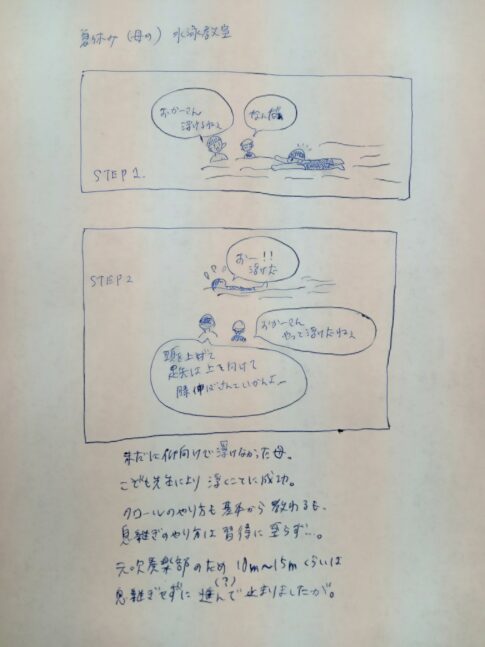 夏休み（母の）水泳教室
おかーさん
浮けるねぇ
STEP 1.
おー!!
浮けた
STEP 2
おかーさん
やっと浮けたねぇ
頭を上げて
足先は上を向けて
膝伸ばさんといかんよー
未だに仰向けで浮けなかった母。
こども先生により浮くことに成功。
クロールのやり方も基本から教わるも、
息継ぎのやり方は習得に至らず…。
元吹奏楽部のため 10m〜15mくらいは
(?)
息継ぎせずに進んで止まりましたが。